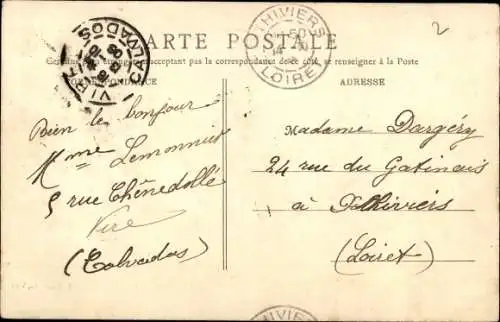 CARTE POSTALE
Ce pays étranger n'acceptant pas la correspondance au recto, se renseigner à la Poste
CORRESPONDANCE
ADRESSE
VIRE
CALVADOS
PITHIVIERS
LOIRET
2
Bien le bonjour
Mme Lemonnier
5 rue Chênedollé
Vire
(Calvados)
Madame Dargéry
24 rue du Gatinais
à Pithiviers
(Loiret)
THIVIERS